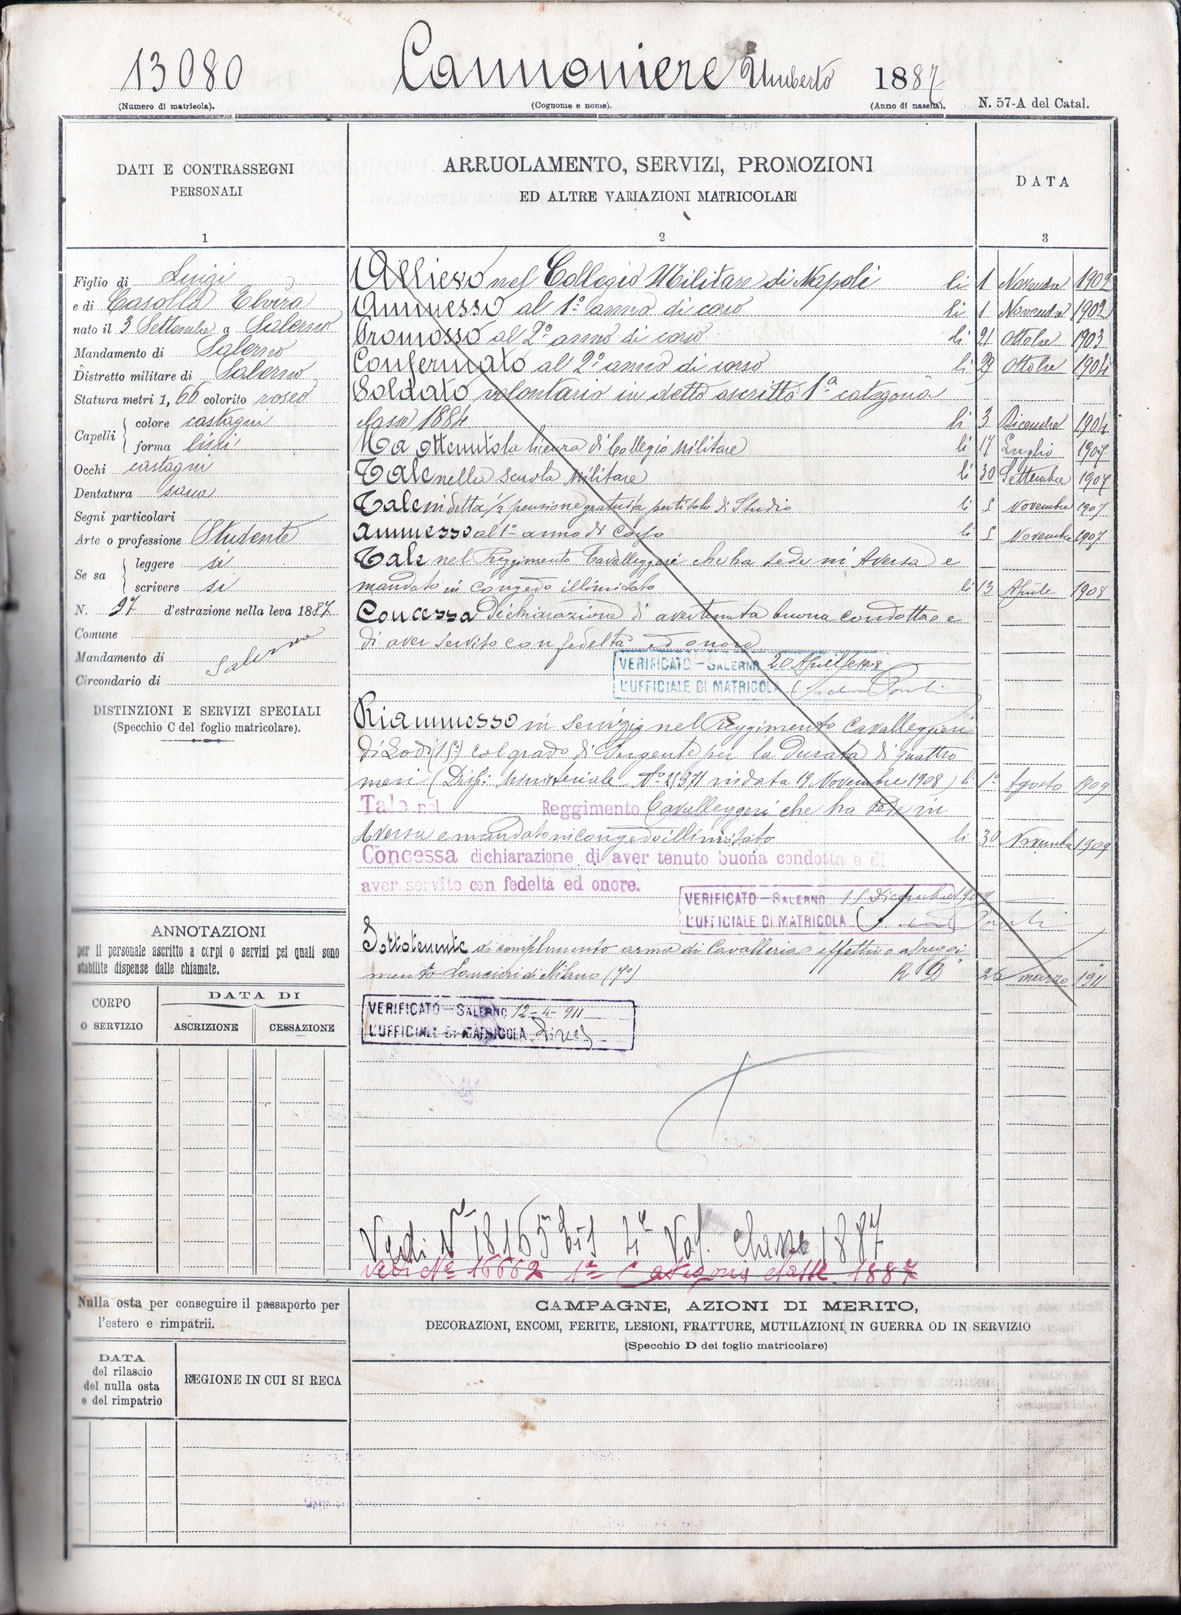 13080 Cannoniere Umberto 1887
(Numero di matricola). (Cognome e nome). (Anno di nascita). N. 57-A del Catal.
DATI E CONTRASSEGNI
PERSONALI
1
Figlio di Luigi
e di Casolla Elvira
nato il 3 Settembre a Salerno
Mandamento di Salerno
Distretto militare di Salerno
Statura metri 1, 66 colorito roseo
Capelli { colore castagni
forma lisci
Occhi castagni
Dentatura sana
Segni particolari
Arte o professione Studente
Se sa { leggere si
scrivere si
N. 97 d'estrazione nella leva 1887
Comune
Mandamento di Salerno
Circondario di
DISTINZIONI E SERVIZI SPECIALI
(Specchio C del foglio matricolare).
ANNOTAZIONI
per il personale ascritto a corpi o servizi pei quali sono
stabilite dispense dalle chiamate.
CORPO
O SERVIZIO
DATA DI
ASCRIZIONE CESSAZIONE
Nulla osta per conseguire il passaporto per
l'estero e rimpatrii.
DATA
del rilascio
del nulla osta
e del rimpatrio
REGIONE IN CUI SI RECA
ARRUOLAMENTO, SERVIZI, PROMOZIONI
ED ALTRE VARIAZIONI MATRICOLARI
2
DATA
3
Allievo nel Collegio Militare di Napoli li 1 Novembre 1902
Ammesso al 1° anno di corso li 1 Novembre 1902
Promosso al 2° anno di corso li 21 Ottobre 1903
Confermato al 2° anno di corso li 29 Ottobre 1904
Soldato volontario in detto ascritto 1a categoria
classe 1884 li 3 Dicembre 1904
Ha ottenuto la licenza di Collegio Militare li 17 Luglio 1907
Tale nella Scuola Militare li 30 Settembre 1907
Tale in detta 1/2 pensione gratuita per titolo di Studio li 5 Novembre 1907
Ammesso al 1° anno di Corso li 5 Novembre 1907
Tale nel Reggimento Cavalleggeri che ha sede in Aversa e
mandato in congedo illimitato li 13 Aprile 1908
Concessa dichiarazione di aver tenuta buona condotta e
di aver servito con fedeltà ed onore
VERIFICATO - SALERNO 20 Aprile 1908
L'UFFICIALE DI MATRICOLA
Riammesso in servizio nel Reggimento Cavalleggeri
di Lodi (15°) col grado di Sergente per la durata di quattro
mesi (Disp. Ministeriale N° 21971 in data 19 Novembre 1908) li 1° Agosto 1909
Tale nel Reggimento Cavalleggeri che ha sede in
Aversa e mandato in congedo illimitato li 30 Novembre 1909
Concessa dichiarazione di aver tenuto buona condotta e di
aver servito con fedeltà ed onore.
VERIFICATO - SALERNO 11 Dicembre 1909
L'UFFICIALE DI MATRICOLA
Sottotenente di complemento arma di Cavalleria effettivo al reggi
mento Lancieri di Milano (7°) R. D. 26 marzo 1911
VERIFICATO - SALERNO 12-4-911
L'UFFICIALE DI MATRICOLA
Vedi N° 18165 bis 4° Vol. classe 1887
Vedi N° 16662 1a Categoria classe 1887
CAMPAGNE, AZIONI DI MERITO,
DECORAZIONI, ENCOMI, FERITE, LESIONI, FRATTURE, MUTILAZIONI IN GUERRA OD IN SERVIZIO
(Specchio D del foglio matricolare)